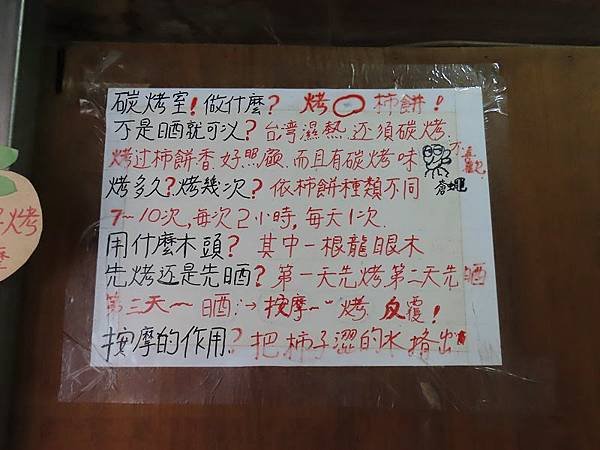 碳烤室！做什麼？ 烤〇柿餅！
不是晒就可以？台湾濕熱还須碳烤.
烤过柿餅香好照顧.而且有碳烤味
不喜歡
蒼蠅
烤多久？烤幾次？依柿餅種類不同
7～10次,每次2小時,每天1次.
用什麼木頭？ 其中一根龍眼木
先烤还是先晒？第一天先烤第二天先晒
第三天～晒→按摩～烤 反覆！
按摩的作用？把柿子澀的水擠出
烤